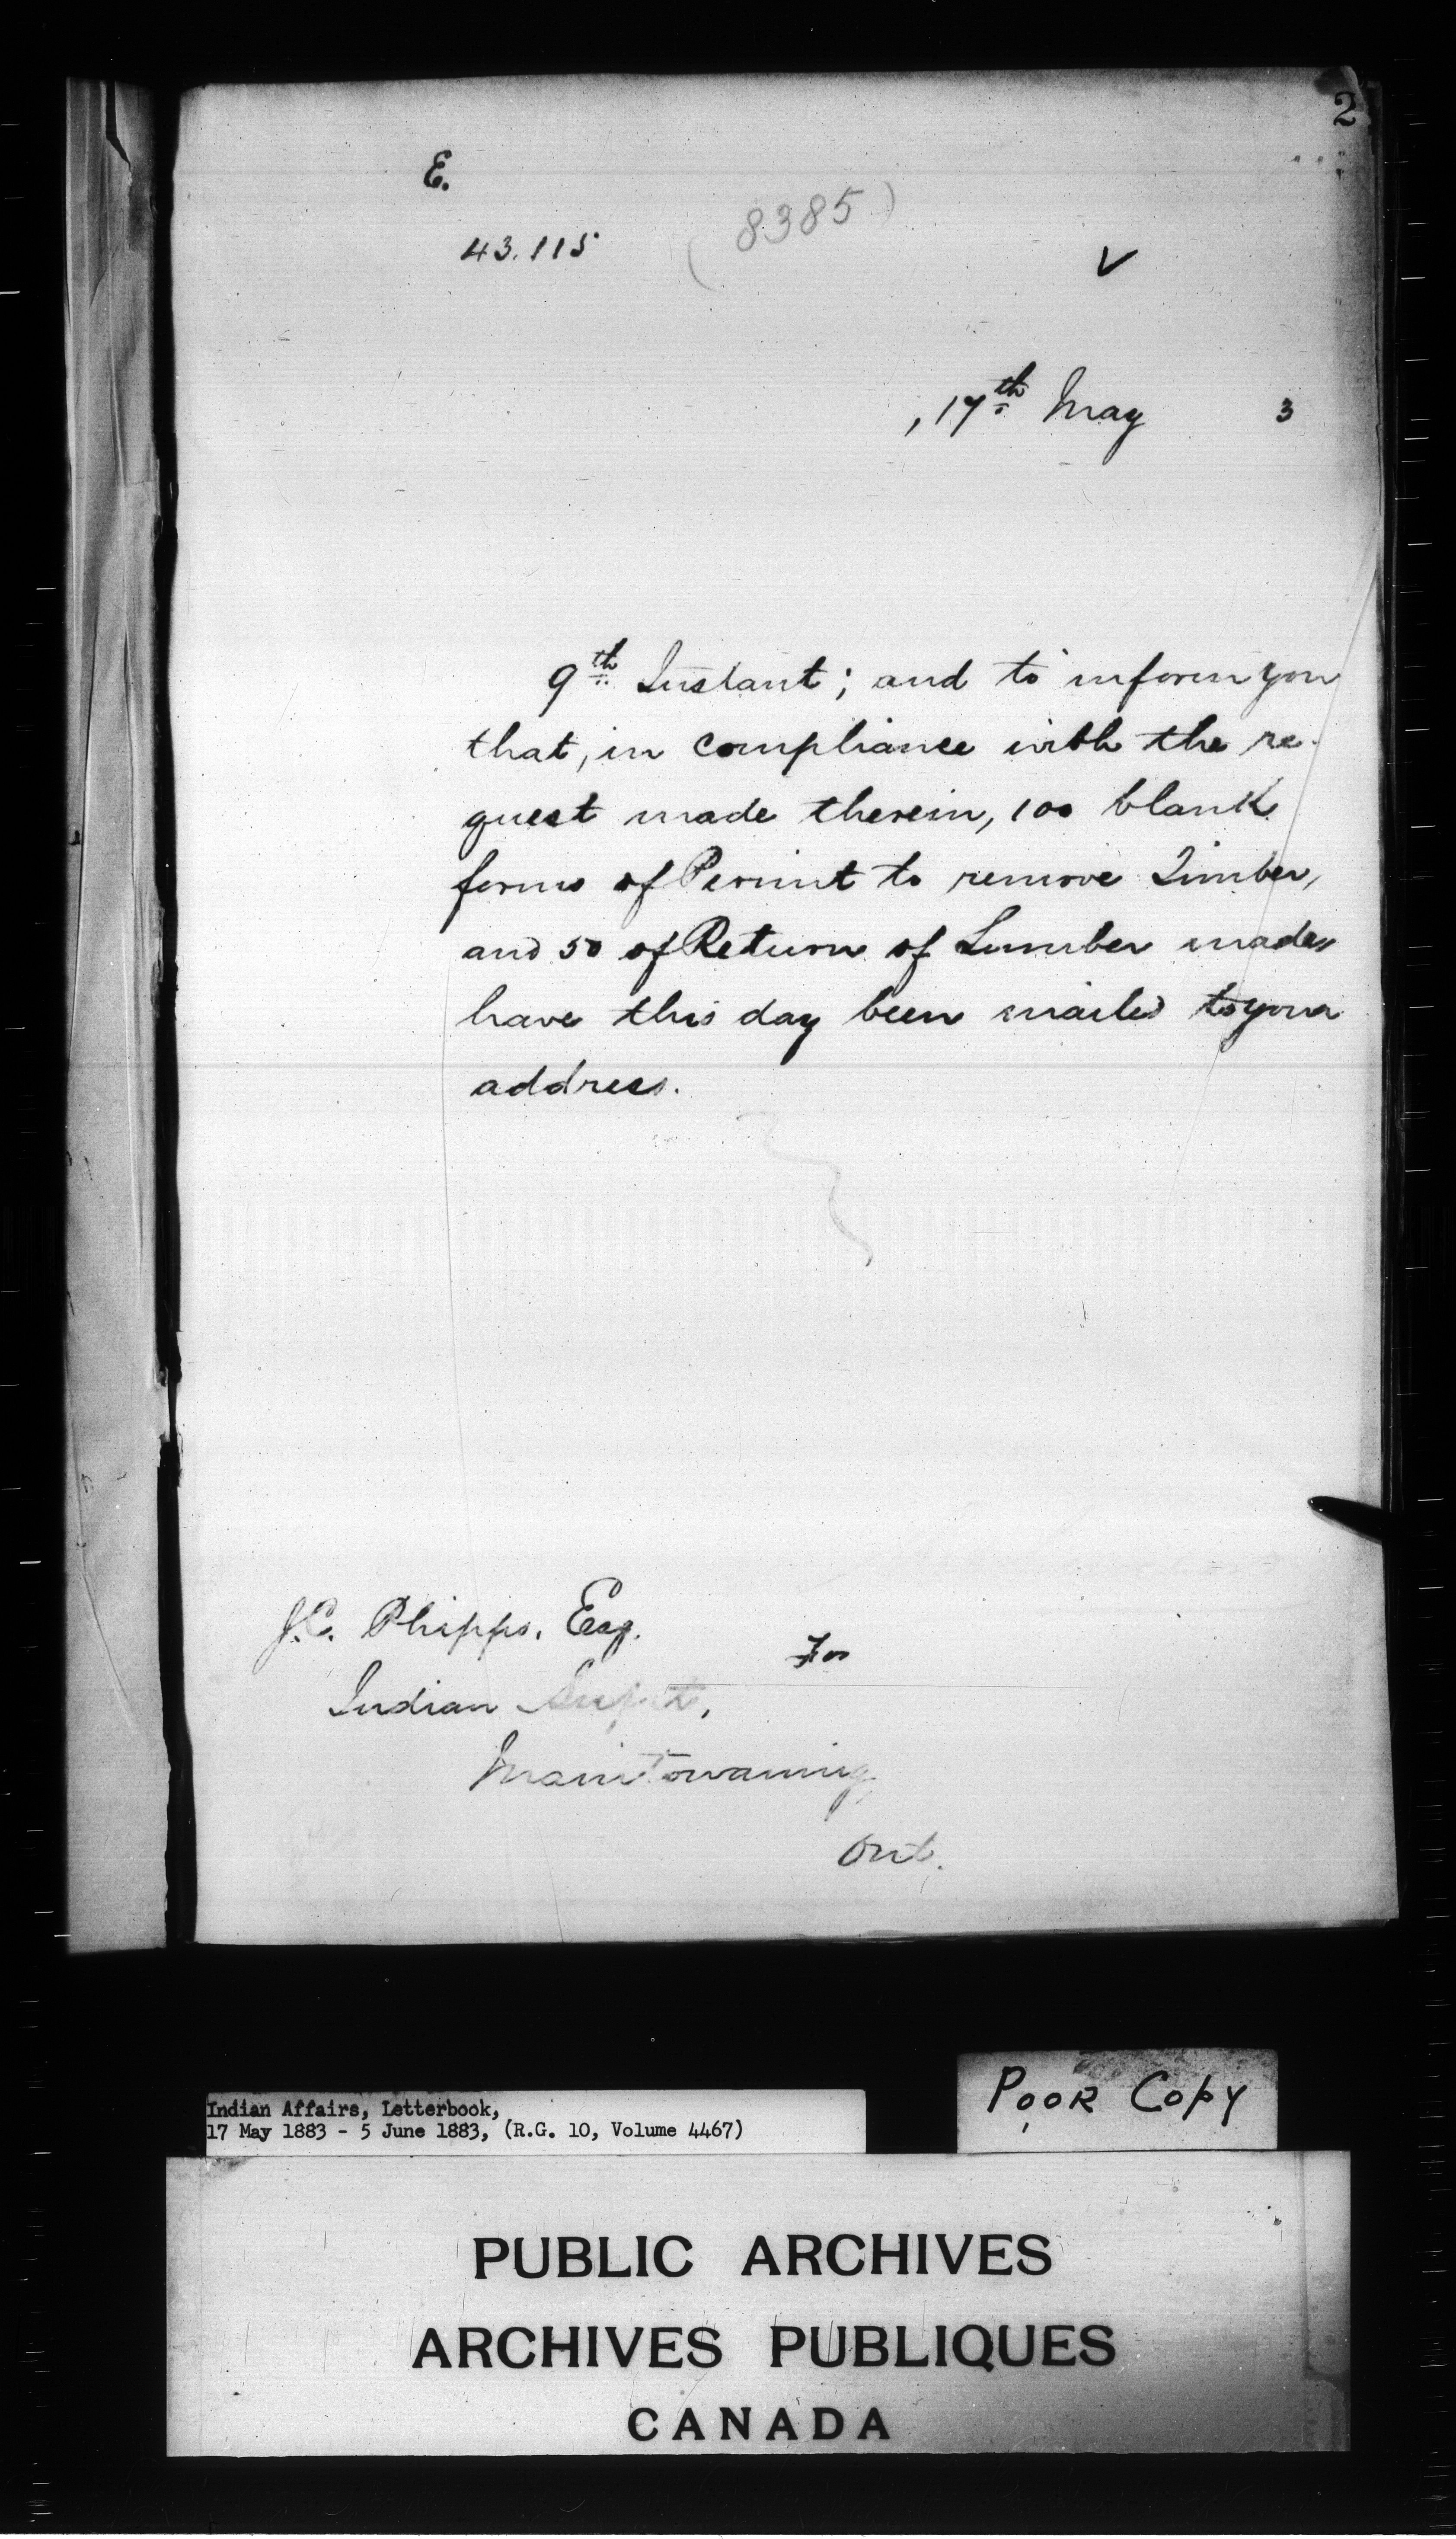 2
E.
43.115
(8385)
✓
, 17th May 3
9th Instant; and to inform you
that, in compliance with the re-
quest made therein, 100 blank
forms of Permit to remove Timber,
and 50 of Return of Lumber made,
have this day been mailed to your
address.
J.C. Phipps, Esq.
For
Indian Supt,
Manitowaning,
Ont.
Indian Affairs, Letterbook,
17 May 1883 - 5 June 1883, (R.G. 10, Volume 4467)
POOR COPY
PUBLIC ARCHIVES
ARCHIVES PUBLIQUES
CANADA